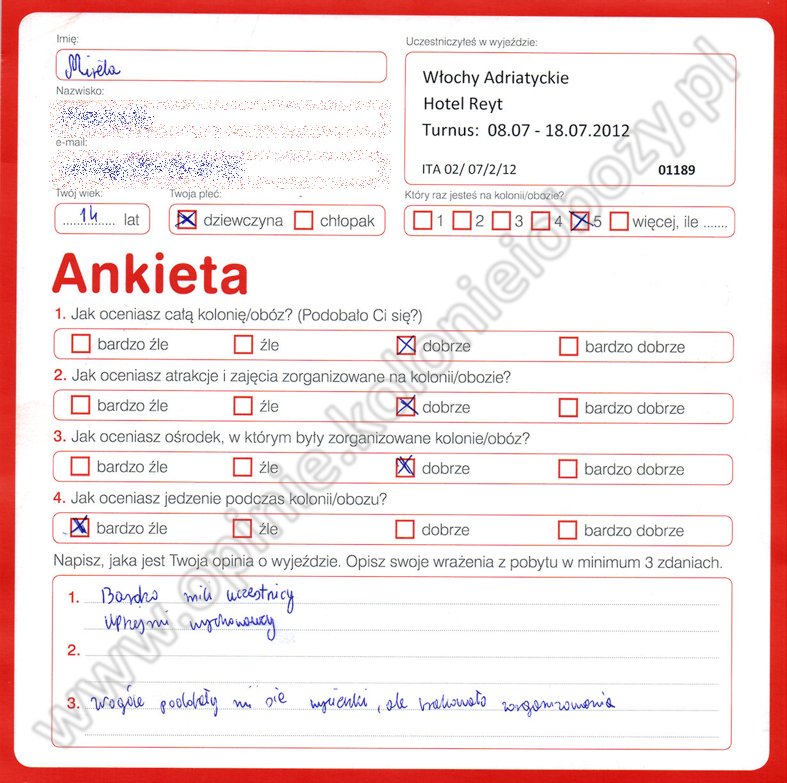 Imię:
Uczestniczyłeś w wyjeździe:
Mirela
Włochy Adriatyckie
Hotel Reyt
Turnus: 08.07 - 18.07.2012
ITA 02/ 07/2/12 01189
Nazwisko:
e-mail:
Twój wiek: Twoja płeć: Który raz jesteś na kolonii/obozie?
14 lat dziewczyna chłopak 1 2 3 4 5 więcej, ile .......
Ankieta
1. Jak oceniasz całą kolonię/obóz? (Podobało Ci się?)
bardzo źle źle dobrze bardzo dobrze
2. Jak oceniasz atrakcje i zajęcia zorganizowane na kolonii/obozie?
bardzo źle źle dobrze bardzo dobrze
3. Jak oceniasz ośrodek, w którym były zorganizowane kolonie/obóz?
bardzo źle źle dobrze bardzo dobrze
4. Jak oceniasz jedzenie podczas kolonii/obozu?
bardzo źle źle dobrze bardzo dobrze
Napisz, jaka jest Twoja opinia o wyjeździe. Opisz swoje wrażenia z pobytu w minimum 3 zdaniach.
1. Bardzo mili uczestnicy
Uprzejmi wychowawcy
2.
3. Wogóle podobały mi się wycieczki, ale brakowało zorganizowania
www.opinie.kolonieiobozy.pl